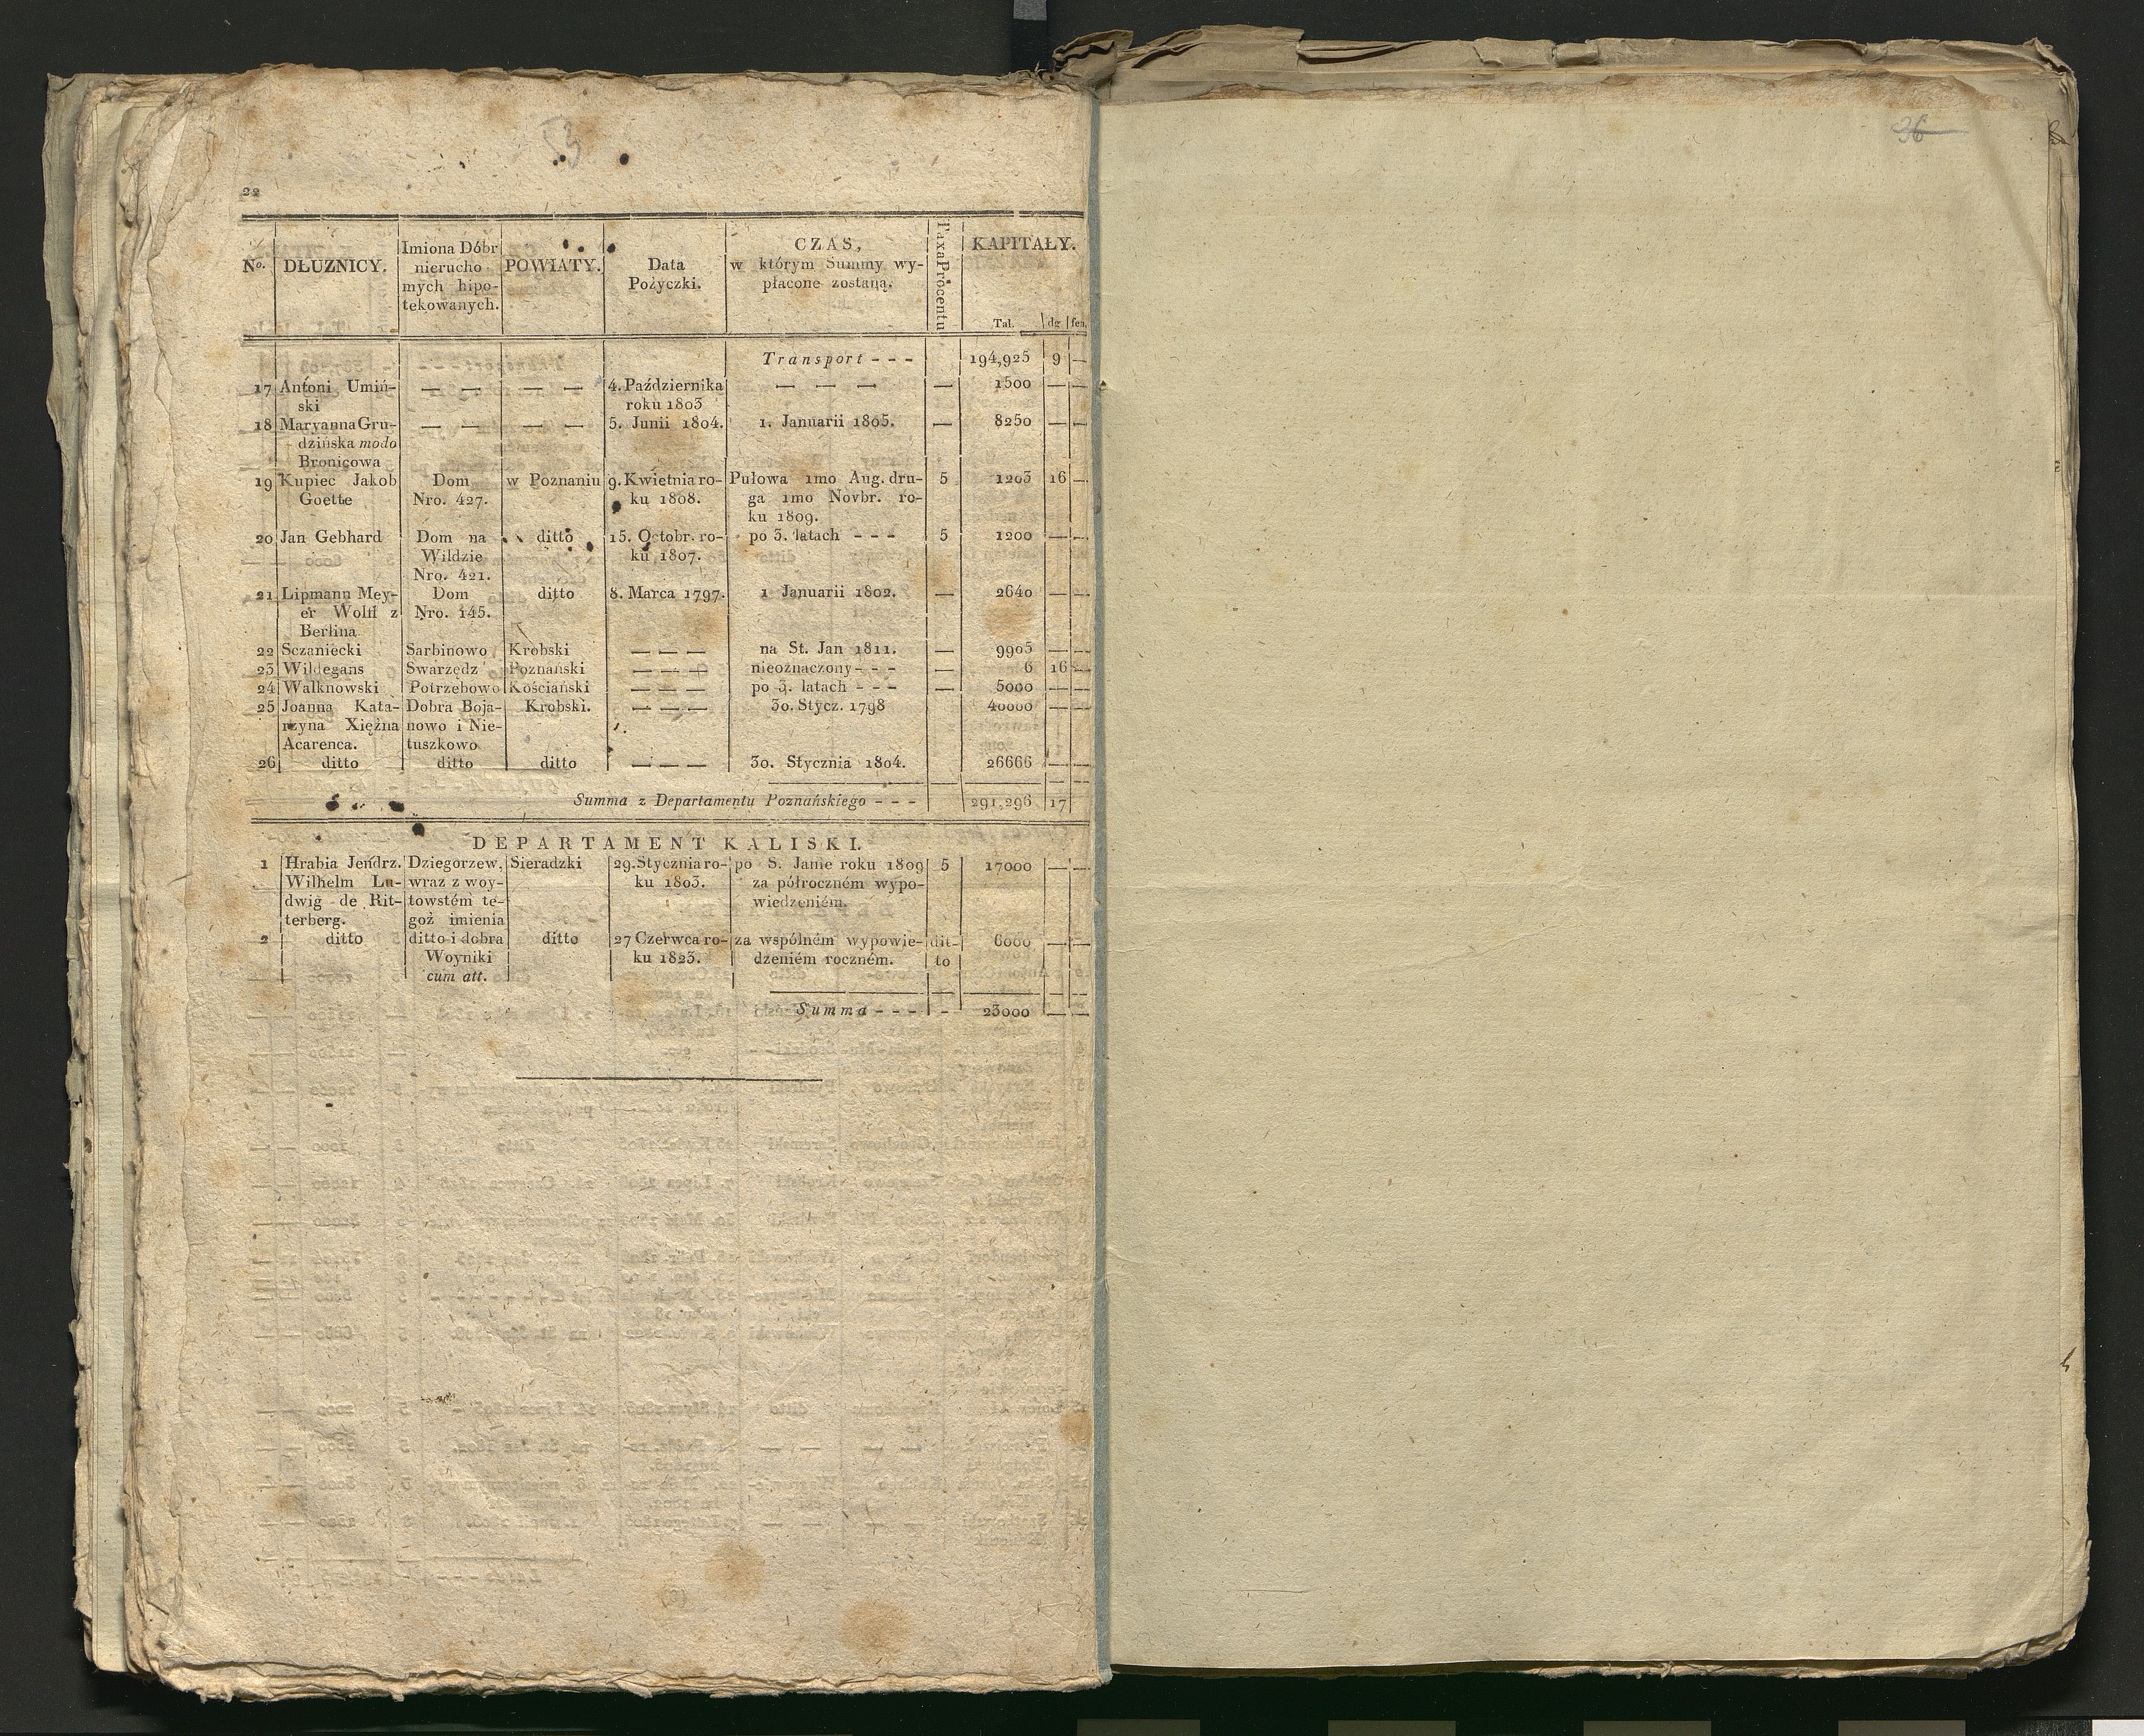 53
22
No. | DŁUZNICY. | Imiona Dóbr nierucho mych hipotekowanych. | POWIATY. | Data Pożyczki. | CZAS, w którym Summy wypłacone zostaną. | Taxa Procentu | KAPITAŁY. Tal. | dg | fen.
Transport - - - | 194,925 | 9 | —
17 | Antoni Umiń- | — — | — — | 4. Października | — — — | — | 1500 | — | —
ski | roku 1803
18 | Maryanna Gru- | — — | — — | 5. Junii 1804. | 1. Januarii 1805. | — | 8250 | — | —
dzińska modo
Bronicowa
19 | Kupiec Jakob | Dom | w Poznaniu | 9. Kwietnia ro- | Pułowa 1mo Aug. dru- | 5 | 1203 | 16 | —
Goette | Nro. 427. | ku 1808. | ga 1mo Novbr. ro-
ku 1809.
20 | Jan Gebhard | Dom na | ditto | 15. Octobr. ro- | po 3. latach - - - | 5 | 1200 | — | —
Wildzie | ku 1807.
Nro. 421.
21 | Lipmann Mey- | Dom | ditto | 8. Marca 1797. | 1 Januarii 1802. | — | 2640 | — | —
er Wolff z | Nro. 145.
Berlina
22 | Sczaniecki | Sarbinowo | Krobski | — — — | na St. Jan 1811. | — | 9905 | — | —
23 | Wildegans | Swarzędz | Poznański | — — — | nieoznaczony - - - | — | 6 | 16 | —
24 | Walknowski | Potrzebowo | Kościański | — — — | po 3. latach - - - | — | 5000 | — | —
25 | Joanna Kata- | Dobra Boja- | Krobski. | — — — | 30. Stycz. 1798 | 40000 | — | —
rzyna Xiężna | nowo i Nie-
Acarenca. | tuszkowo
26 | ditto | ditto | ditto | — — — | 30. Stycznia 1804. | 26666 | — | —
Summa z Departamentu Poznańskiego - - - | 291,296 | 17
DEPARTAMENT KALISKI.
1 | Hrabia Jendrz. | Dziegorzew, | Sieradzki | 29. Stycznia ro- | po S. Janie roku 1809 | 5 | 17000 | — | —
Wilhelm Lu- | wraz z woy- | ku 1803. | za półroczném wypo-
dwig de Rit- | towstém te- | wiedzeniém.
terberg. | goż imienia
2 | ditto | ditto i dobra | ditto | 27 Czerwca ro- | za wspólném wypowie- | dit- | 6000 | — | —
Woyniki | ku 1823. | dzeniém roczném. | to
cum att.
Summa - - - | - | 23000 | — | —
36